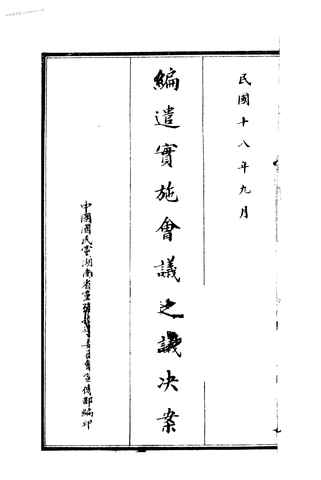 民國十八年九月
編遣實施會議之議決案
中國國民黨湖南省黨務指導委員會宣傳部編印